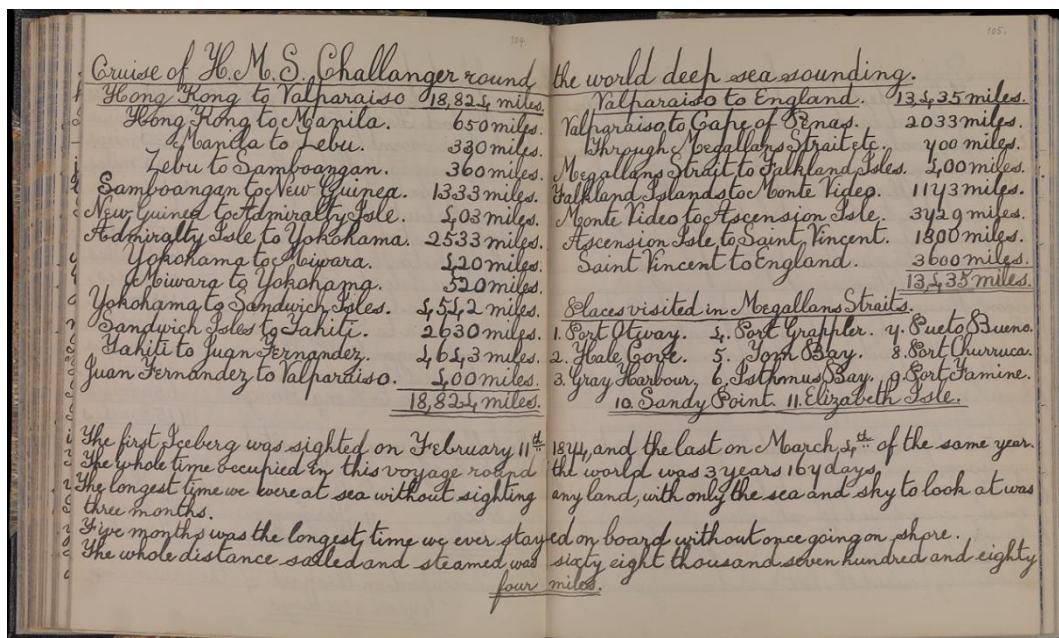 104.
105.
Cruise of H.M.S. Challanger round the world deep sea sounding.
Hong Kong to Valparaiso 18,824 miles.
Hong Kong to Manila. 650 miles.
Manila to Zebu. 330 miles.
Zebu to Samboangan. 360 miles.
Samboangan to New Guinea. 1333 miles.
New Guinea to Admiralty Isle. 403 miles.
Admiralty Isle to Yokohama. 2533 miles.
Yokohama to Miwara. 420 miles.
Miwara to Yokohama. 520 miles.
Yokohama to Sandwich Isles. 4542 miles.
Sandwich Isles to Tahiti. 2630 miles.
Tahiti to Juan Fernandez. 4643 miles.
Juan Fernandez to Valparaiso. 400 miles.
18,824 miles.
Valparaiso to England. 13,435 miles.
Valparaiso to Cape of Penas. 2033 miles.
Through Megallans Strait etc. 700 miles.
Megallans Strait to Falkland Isles. 400 miles.
Falkland Islands to Monte Video. 1173 miles.
Monte Video to Ascension Isle. 3729 miles.
Ascension Isle to Saint Vincent. 1800 miles.
Saint Vincent to England. 3600 miles.
13,435 miles.
Places visited in Megallans Straits.
1. Port Otway. 4. Port Grappler. 7. Pueto Bueno.
2. Hale Cove. 5. Tom Bay. 8. Port Churruca.
3. Gray Harbour. 6. Isthmus Bay. 9. Port Famine.
10. Sandy Point. 11. Elizabeth Isle.
The first Iceberg was sighted on February 11th 1874, and the last on March, 4th of the same year.
The whole time occupied in this voyage round the world was 3 years 167 days.
The longest time we were at sea without sighting any land, with only the sea and sky to look at was
three months.
Five months was the longest time we ever stayed on board without once going on shore.
The whole distance sailed and steamed was sixty eight thousand seven hundred and eighty
four miles.